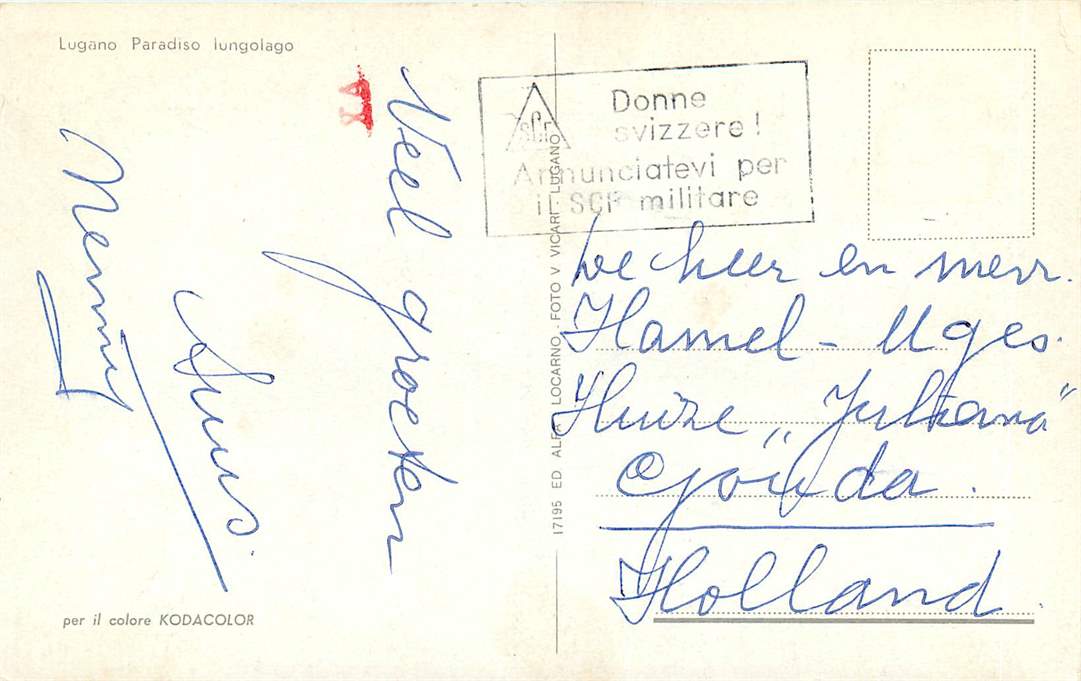 Lugano Paradiso lungolago
Veel groeten
Guus.
Menny
per il colore KODACOLOR
17195 ED. ALFA LOCARNO - FOTO V VICARI - LUGANO
SCF
Donne
svizzere!
Annunciatevi per
il SCF militare
De heer en mevr.
Hamel - Uges.
Huize „Juliana”
Gouda.
Holland.